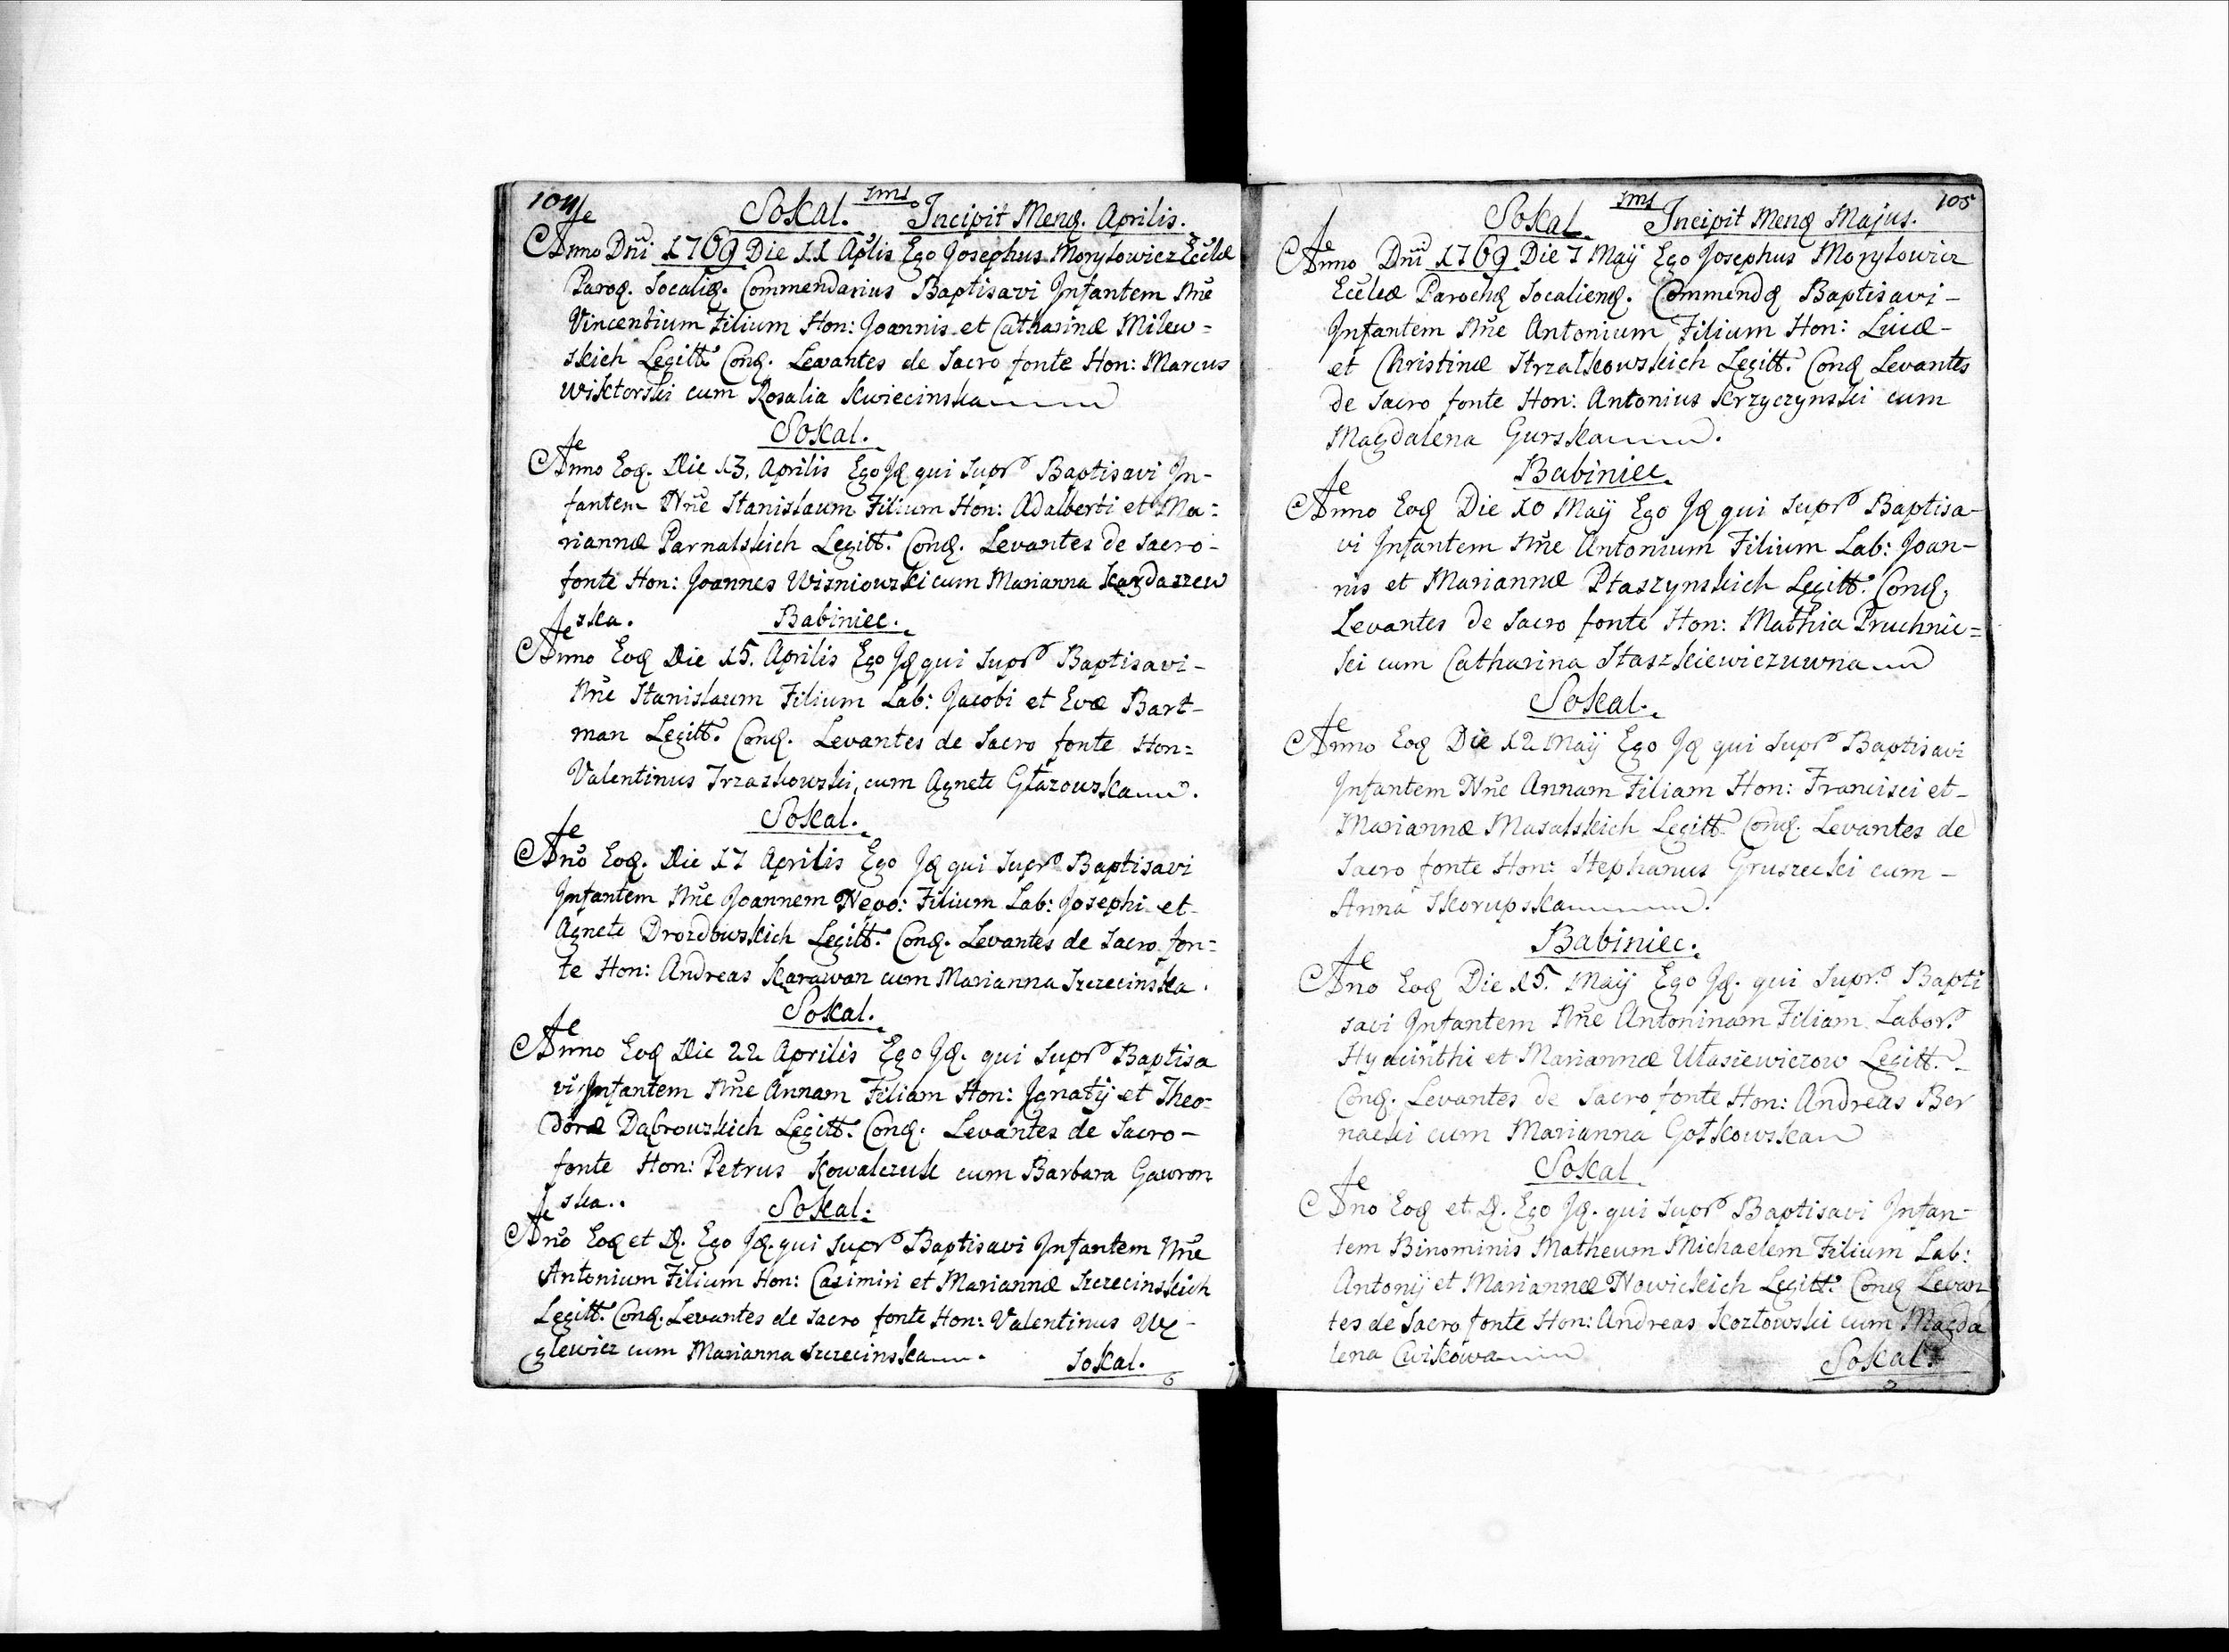 104
Sokal. Incipit Menq. Aprilis.
Anno Dni 1769 Die 11 Aplis Ego Josephus Morylowicz Ecclæ
Paroq. Socaliq. Commendarius Baptisavi Infantem Nne
Vincentium Filium Hon: Joannis et Catharinæ Milew=
skich Legitt. Conq. Levantes de Sacro fonte Hon: Marcus
Wiktorski cum Rosalia Kwiecinska
Sokal.
Anno Eoq. Die 13. Aprilis Ego Jq qui Supr Baptisavi In-
fantem Nne Stanislaum Filium Hon: Adalberti et Ma=
riannæ Parnalskich Legitt. Conq. Levantes de Sacro-
fonte Hon: Joannes Wisniowski cum Marianna Kardaszew
ska.
Babiniec.
Anno Eoq Die 15. Aprilis Ego Jq qui Supr Baptisavi-
Nne Stanislaum Filium Lab: Jacobi et Evæ Bart-
man Legitt. Conq. Levantes de Sacro fonte Hon=
Valentinus Trzaskowski, cum Agnete Głazowska.
Sokal.
Ano Eoq. Die 17 Aprilis Ego Jq qui Supr Baptisavi
Infantem Nne Joannem Nepo: Filium Lab: Josephi et
Agnete Drozdowskich Legitt. Conq. Levantes de Sacro fon=
te Hon: Andreas Karawan cum Marianna Szczecinska.
Sokal.
Anno Eoq Die 22 Aprilis Ego Jq. qui Supr Baptisa
vi Infantem Nne Annam Filiam Hon: Ignatij et Theo=
doræ Dabrowskich Legitt. Conq. Levantes de Sacro-
fonte Hon: Petrus Kowalczuk cum Barbara Gawron
ska..
Sokal.
Ano Eoq et D. Ego Jq. qui Supr Baptisavi Infantem Nne
Antonium Filium Hon: Casimiri et Mariannæ Szczecinskich
Legitt. Conq. Levantes de Sacro fonte Hon: Valentinus
glewicz cum Marianna Szczecinska.
Sokal.
105
Sokal Incipit Menq Majus.
Anno Dni 1769 Die 7 Maij Ego Josephus Morylowicz
Eccleæ Parochq Socalienq. Commendq Baptisavi-
Infantem Nne Antonium Filium Hon: Lucæ-
et Christinæ Strzałkowskich Legitt. Conq Levantes
de Sacro fonte Hon: Antonius Krzyczynski cum
Magdalena Gurska.
Babiniec.
Anno Eoq Die 10 Maij Ego Jq qui Supr Baptisa-
vi Infantem Nne Antonium Filium Lab: Joan-
nis et Mariannæ Ptaszynskich Legitt. Conq.
Levantes de Sacro fonte Hon: Mathia Pruchnic=
ki cum Catharina Staszkiewiczuwna
Sokal.
Anno Eoq Die 12 Maij Ego Jq qui Supr Baptisavi
Infantem Nne Annam Filiam Hon: Francisci et-
Mariannæ Masalskich Legitt. Conq. Levantes de
Sacro fonte Hon: Stephanus Gruszecki cum -
Anna Skorupska.
Babiniec.
Ano Eoq Die 15. Maij Ego Jq. qui Supr. Bapti
savi Infantem Nne Antoninam Filiam Labor.
Hyacinthi et Mariannæ Ułasiewiczow Legitt. -
Conq. Levantes de Sacro fonte Hon: Andreas Ber
nacki cum Marianna Gotkowska
Sokal
Ano Eoq et D. Ego Jq. qui Supr Baptisavi Infan-
tem Binominis Matheum Michaelem Filium Lab:
Antonij et Mariannæ Nowickich Legitt. Conq Levan
tes de Sacro fonte Hon: Andreas Kozłowski cum Magda
lena Cwikowa
Sokal